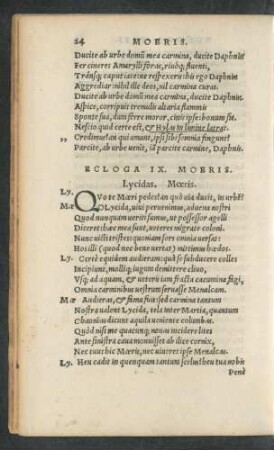 24 MOERIS.
Ducite ab urbe domũ mea carmina, ducite Daphnin
Fer cineres Amarylli foras, riuoq; fluenti,
Transq; caput iace: ne respexeris: his ego Daphnin
Aggrediar: nihil ille deos, nil carmina curat.
Ducite ab urbe domũ mea carmina, ducite Daphnin.
Aspice, corripuit tremulis altaria flammis
Sponte sua, dum ferre moror, cinis ipse: bonum sit.
Nescio quid certe est, & Hylax in limine latrat.
„ Credimus? an qui amant, ipsi sibi somnia fingunt?
Parcite, ab urbe uenit, iã parcite carmina, Daphnis.
ECLOGA IX. MOERIS.
Lycidas, Mœris.
Ly. QVo te Mœri pedes? an quò uia ducit, in urbẽ?
Mœ O Lycida, uiui peruenimus, aduena nostri
Quod nunquam ueriti sumus, ut possessor agelli
Diceret: hæc mea sunt, ueteres migrate coloni.
Nunc uicti tristes, quoniam fors omnia uersat:
Hos illi (quod nec bene uertat) mittimus hœdos.
Ly. Certè equidem audieram: quà se subducere colles
Incipiunt, molliq; iugum demittere cliuo,
Vsq; ad aquam, & ueteris iam fracta cacumina fagi,
Omnia carminibus uestrum seruasse Menalcam.
Mœ Audieras, & fama fuit: sed carmina tantum
Nostra ualent Lycida, tela inter Martia, quantum
Chaonias dicunt aquila ueniente columbas.
Quòd nisi me quacunq; nouas incidere lites
Ante sinistra caua monuisset ab ilice cornix,
Nec tuus hic Mœris, nec uiueret ipse Menalcas.
Ly. Heu cadit in quenquam tantum scelus? heu tua nobis
Penè